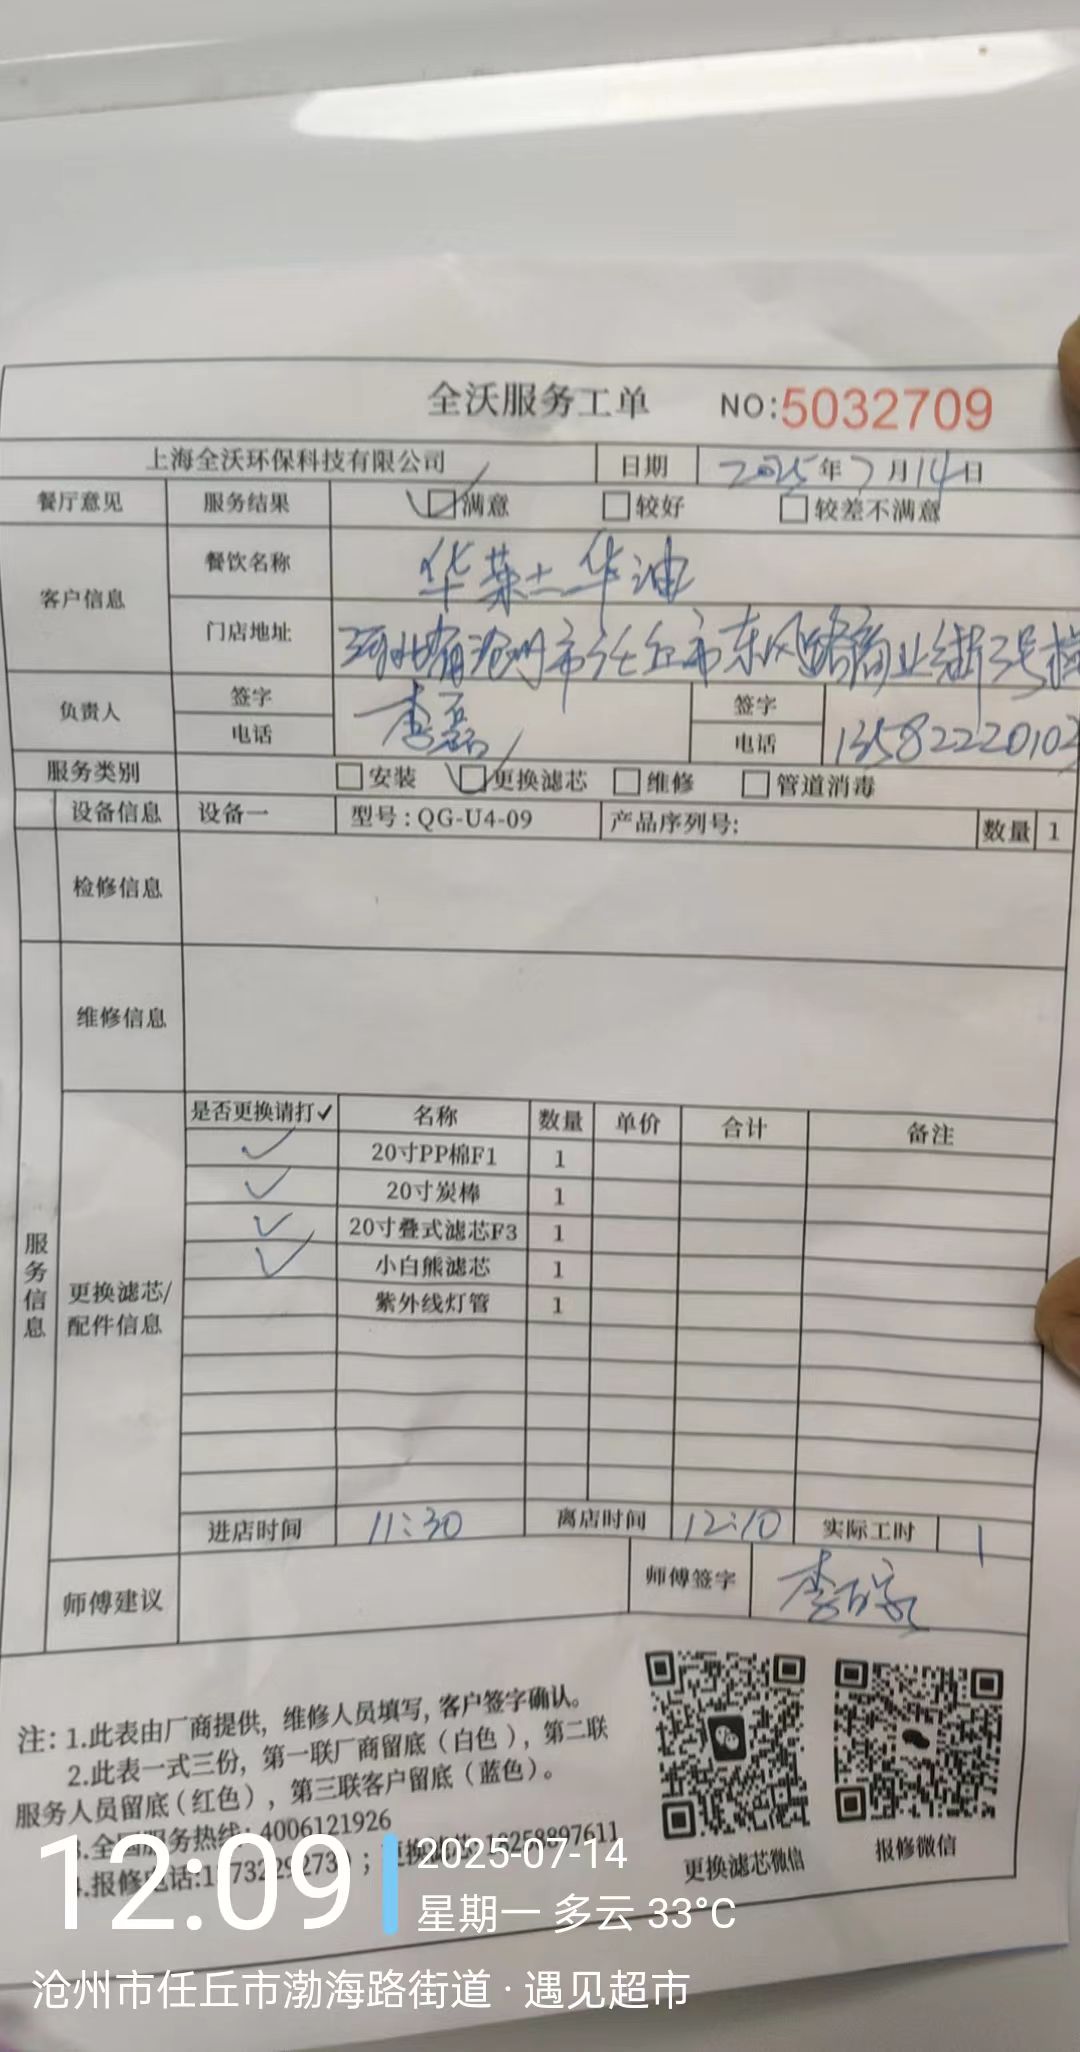 全沃服务工单 NO:5032709
上海全沃环保科技有限公司 日期 2025年7月14日
餐厅意见 服务结果 满意 较好 较差不满意
客户信息 餐饮名称 华莱士华油
门店地址 河北省沧州市任丘市东风路商业街3号楼
负责人 签字 李磊 签字
电话 电话 1358222010
服务类别 安装 更换滤芯 维修 管道消毒
设备信息 设备一 型号:QG-U4-09 产品序列号: 数量 1
检修信息
维修信息
服务信息
更换滤芯/配件信息
是否更换请打✓ 名称 数量 单价 合计 备注
✓ 20寸PP棉F1 1
✓ 20寸炭棒 1
✓ 20寸叠式滤芯F3 1
✓ 小白熊滤芯 1
紫外线灯管 1
进店时间 11:30 离店时间 12:10 实际工时 1
师傅建议 师傅签字 李
注:1.此表由厂商提供,维修人员填写,客户签字确认。
2.此表一式三份,第一联厂商留底(白色),第二联
服务人员留底(红色),第三联客户留底(蓝色)。
3.全国服务热线:4006121926
4.报修电话: ;更换滤芯:
更换滤芯微信 报修微信
12:09 2025-07-14
星期一 多云 33°C
沧州市任丘市渤海路街道·遇见超市